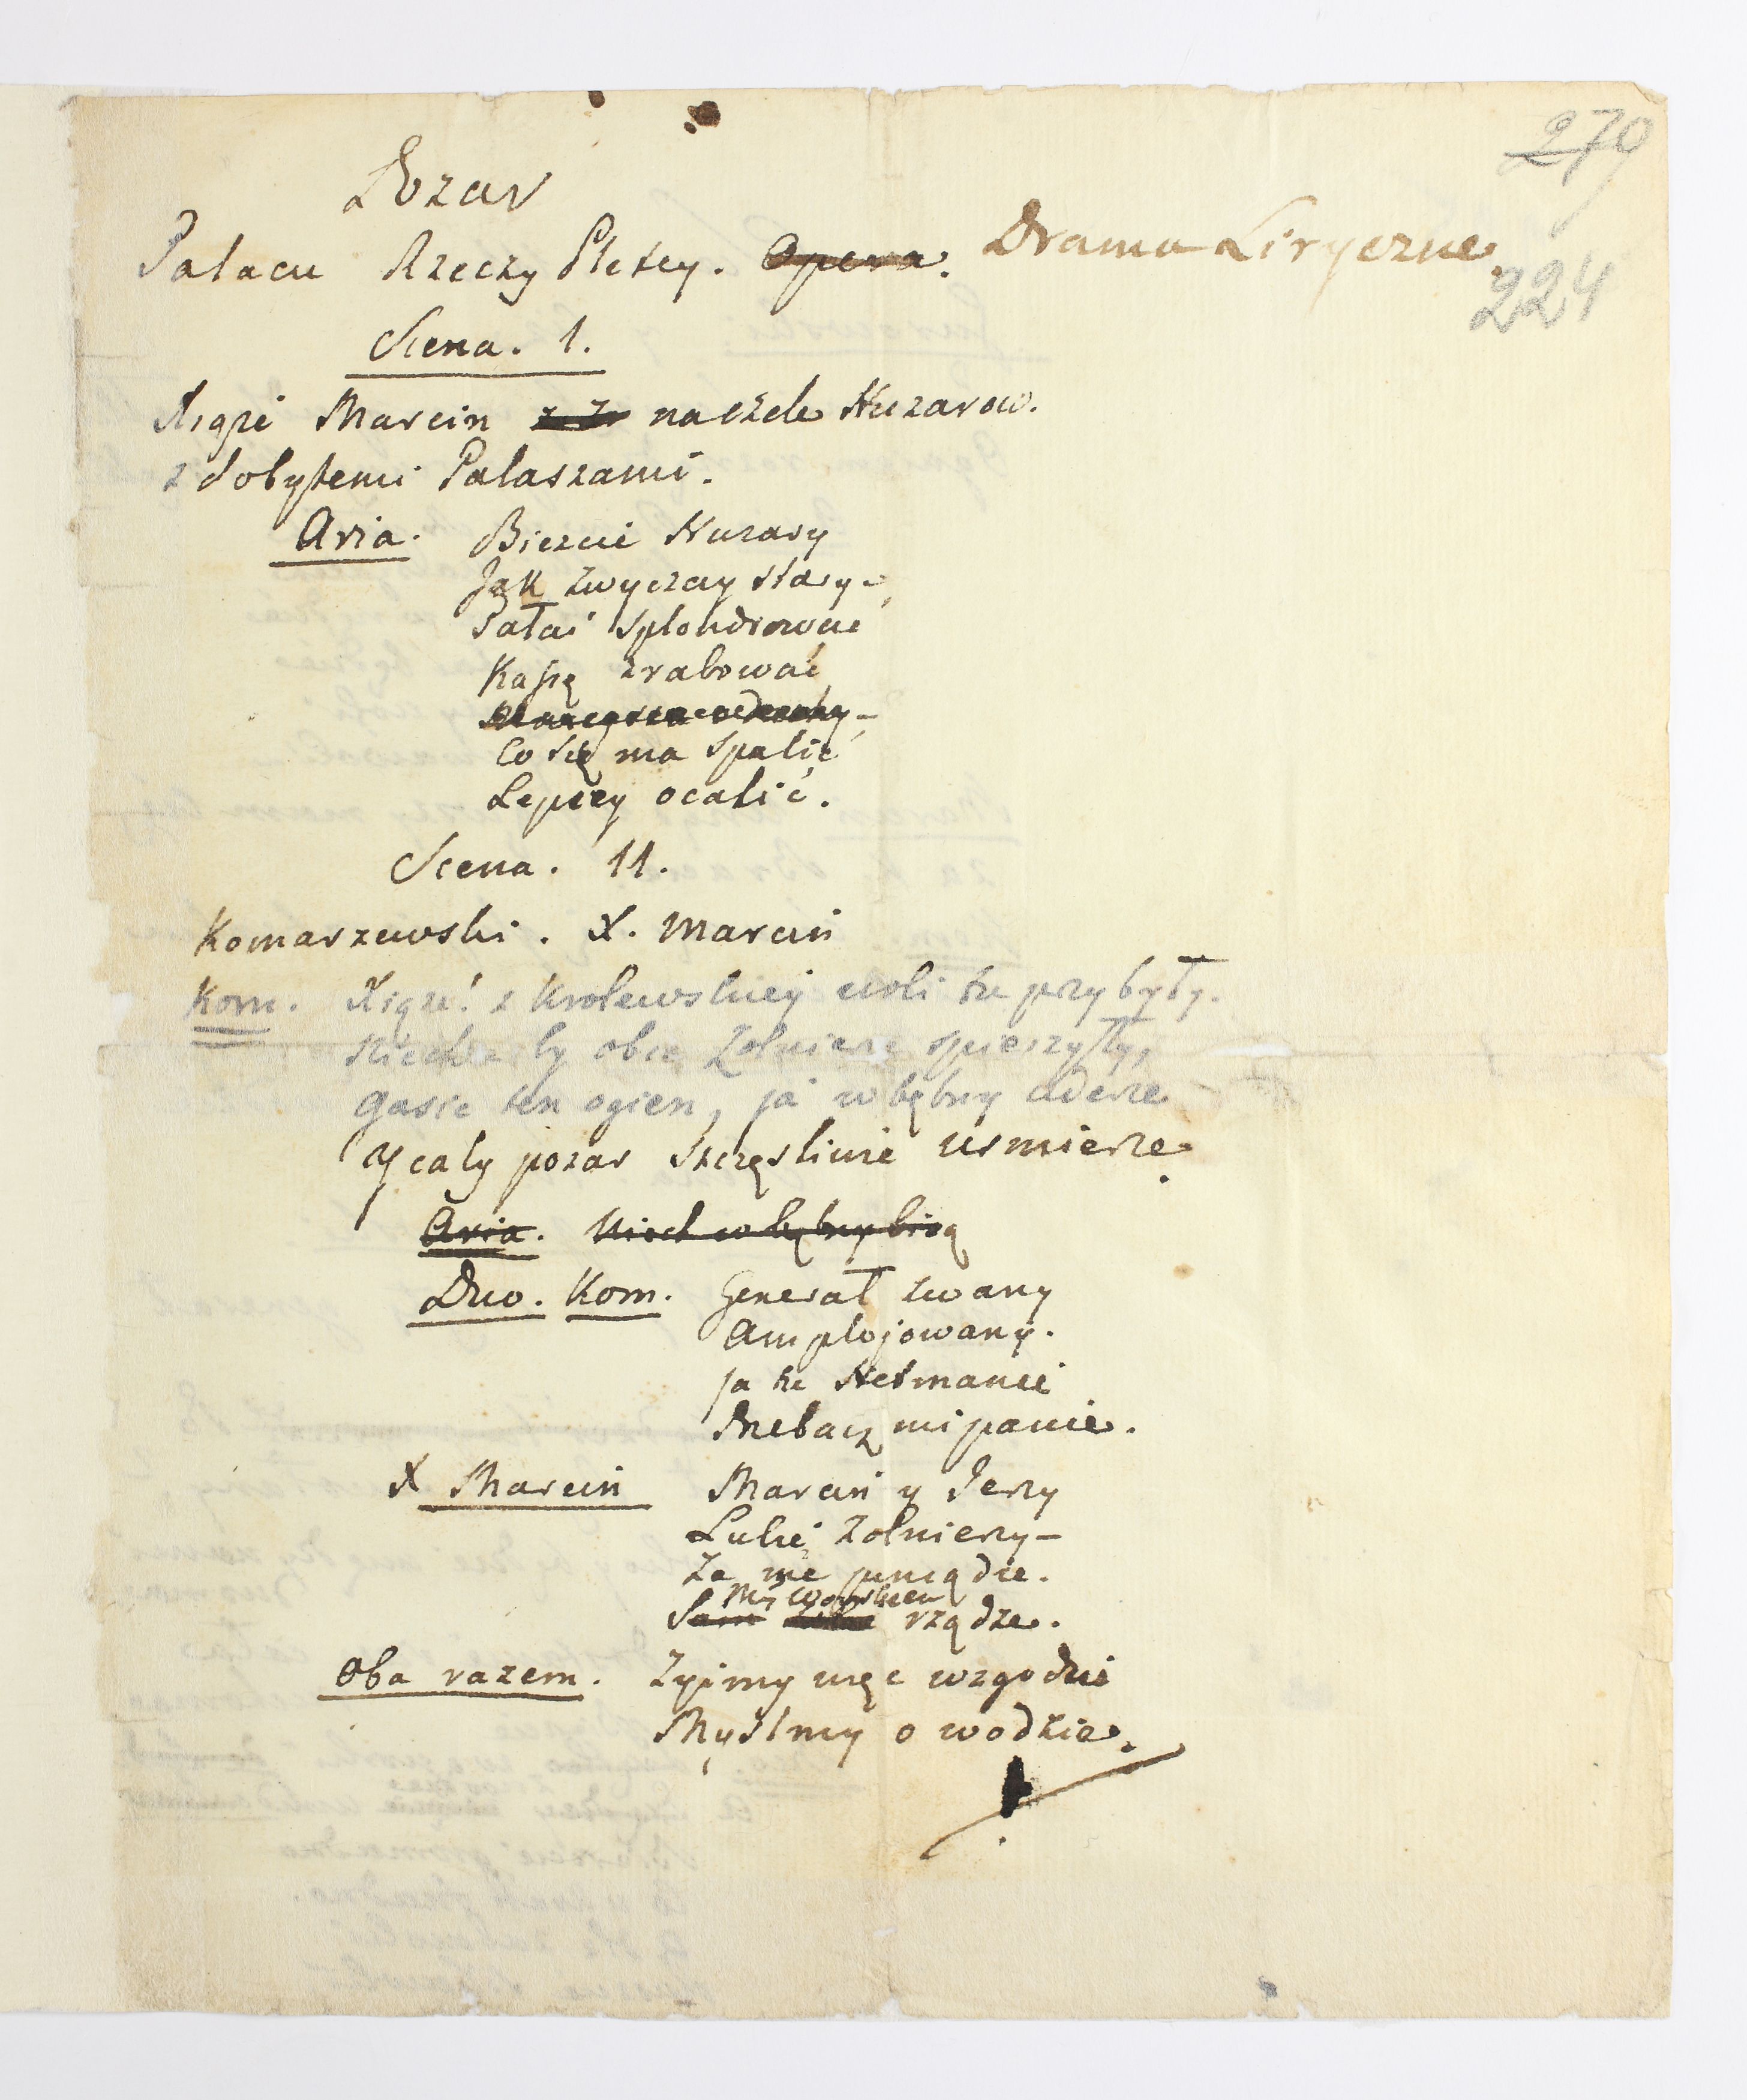 279
Pozar
Palacu Rzeczy Pltey. Opera. Drama Liryczne.
224
Scena. 1.
Xiąze Marcin na czele Huzarow.
z dobytemi Palaszami.
Aria. Biezcie Huzary
Jak zwyczay stary
Pałac splondrować
Kassę zrabować
Co się ma spalić
Lepiey ocalić.
Scena. 11.
Komarzewski. X. Marcin
Kom. Xiąze! z Krolewskiey woli tu przybyły.
Niech by obce Zolnierze spieszyły,
Gasic ten ogien, ja w bębny uderze
Y caly pozar szczęsliwie usmierze.
Aria. Niech w bębny biią
Duo. Kom. Generał zwany
Amplojowany.
Ja tu Hetmanie
Przebacz mi panie.
X Marcin Marcin y Jerzy
Lubię Zolnierzy –
Za me pieniądze.
My Woyskiem
Sam rządze.
Oba razem. Zyimy więc w zgodzie
Myslmy o wodzie.